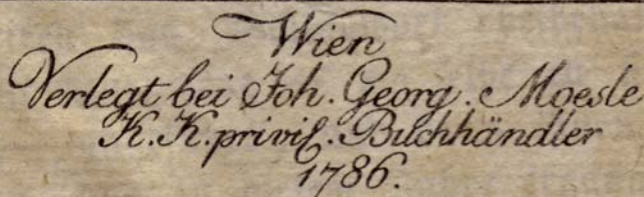 Wien
Verlegt bei Joh. Georg. Moesle
K. K. privil. Buchhändler
1786.